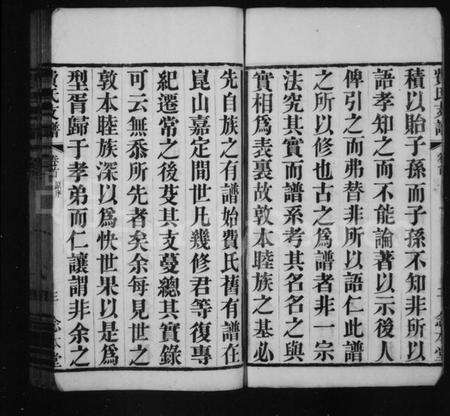 積以貽子孫而子孫不知非所以
語孝知之而不能論著以示後人
俾引之而弗替非所以語仁此譜
之所以修也古之爲譜者非一宗
法究其實而譜系考其名名之與
實相爲表裏故敦本睦族之基必
先自族之有譜始費氏舊有譜在
崑山嘉定間世凡幾修君等復專
紀遷常之後芟其支蔓總其實錄
可云無忝所先者矣余每見世之
敦本睦族深以爲快世果以是爲
型胥歸于孝弟而仁讓謂非余之
費氏支譜
卷首
三